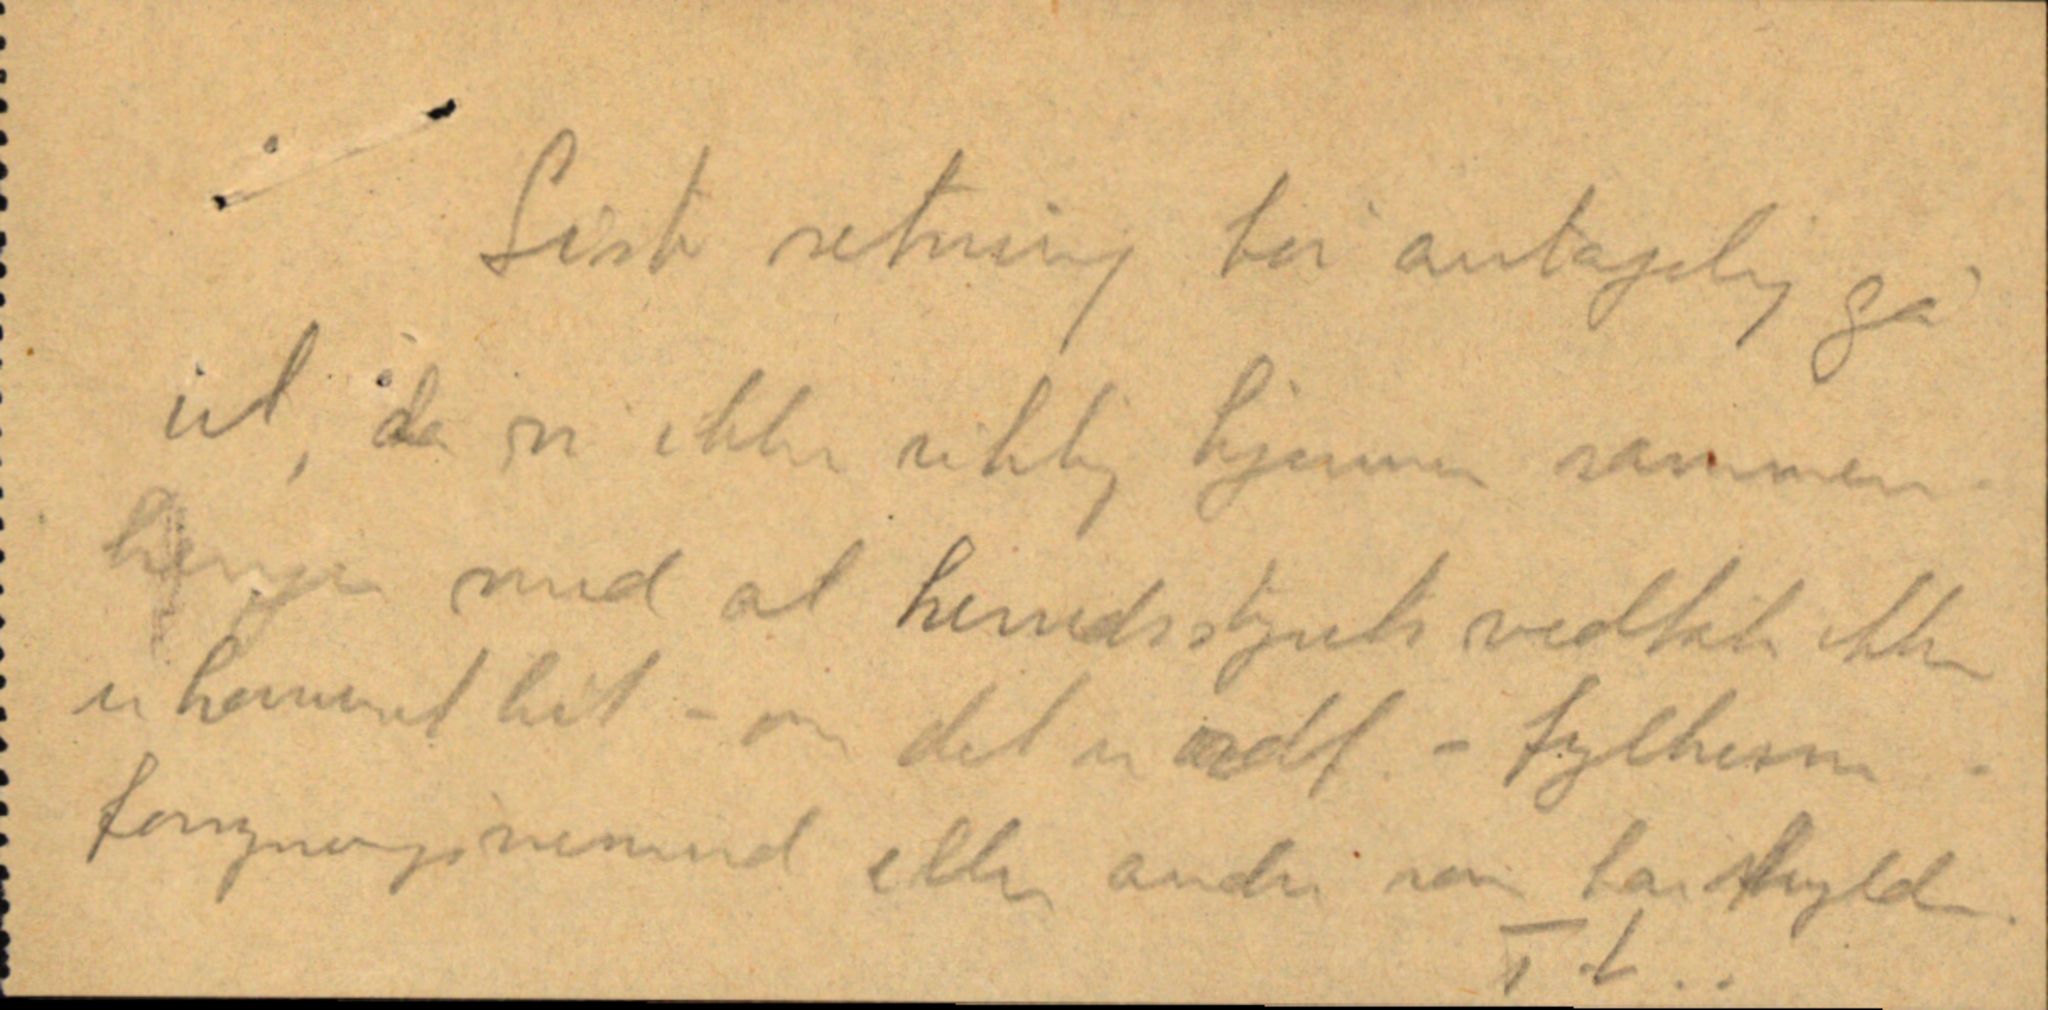 Siste setning bør antagelig gå
ut, da vi ikke riktig kjenner sammen-
hengen med at herredsstyrets vedtak ikke
er kommet hit - om det er ordf. - fylkesm -
forsyningsnemnd eller andre som har skylden.